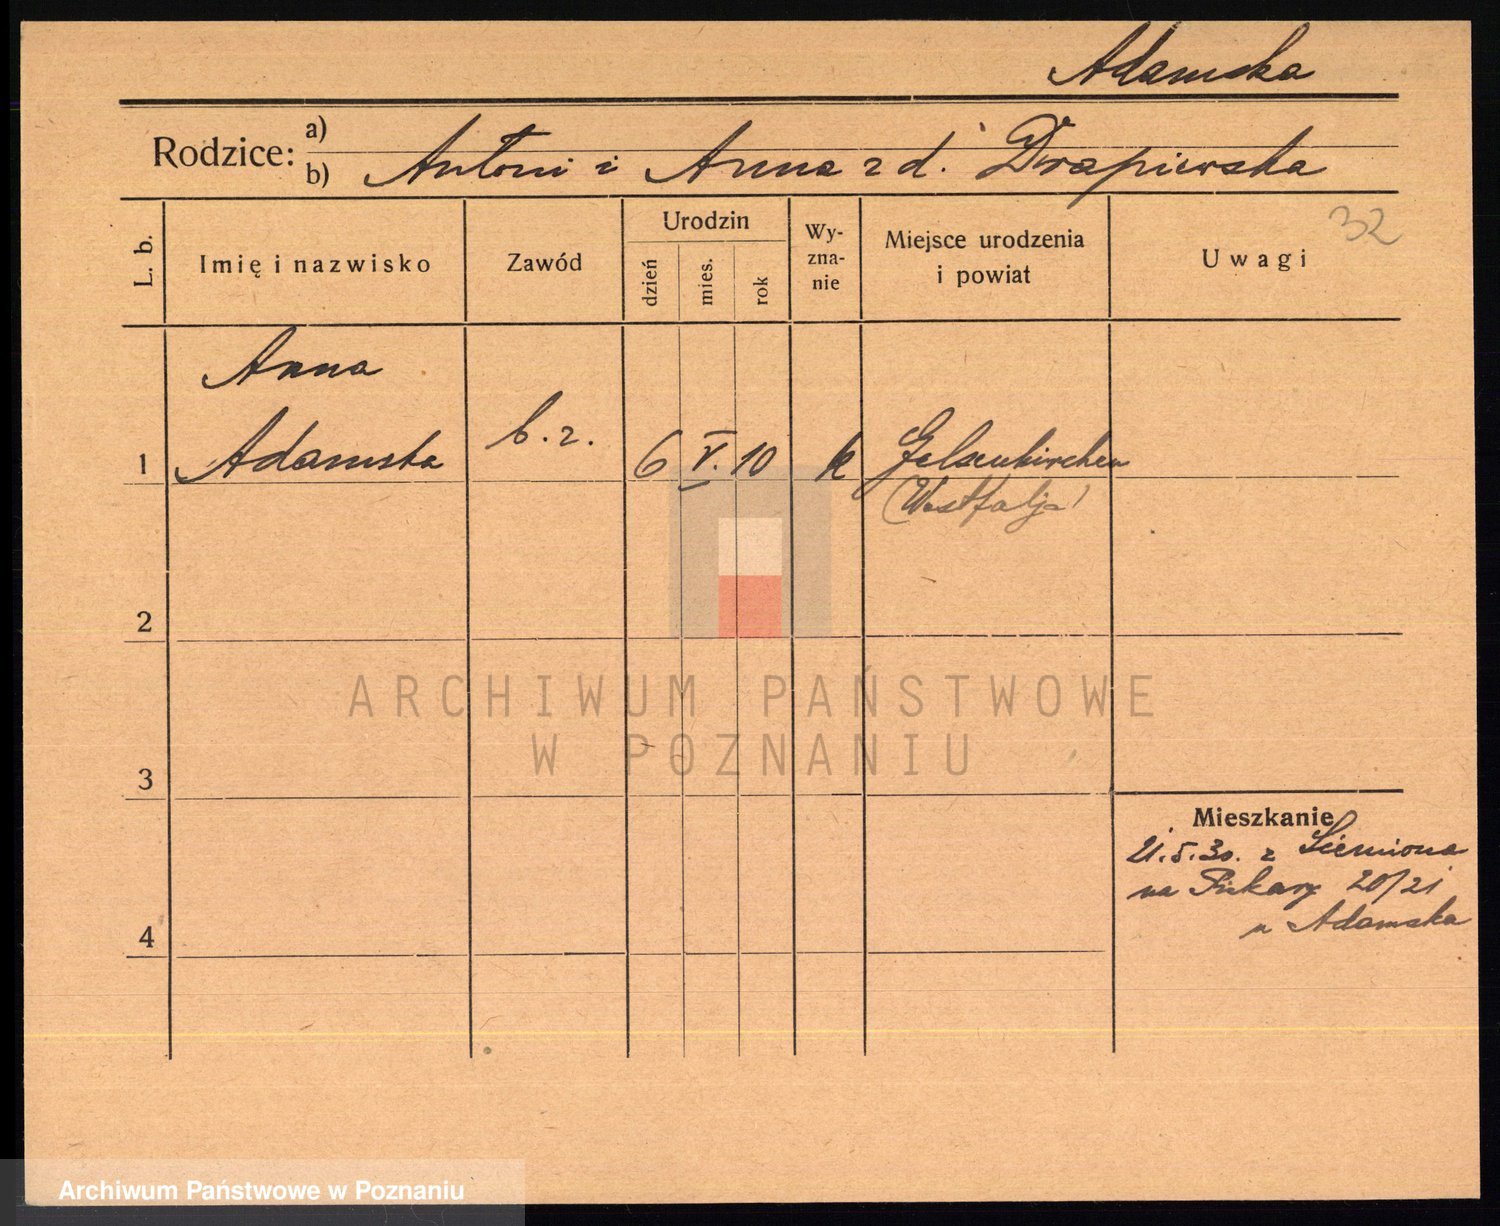 Adamska
Rodzice: a)
b) Antoni i Anna z d. Drapiewska
32
L. b.
Imię i nazwisko
Zawód
Urodzin
dzień
mies.
rok
Wy-
zna-
nie
Miejsce urodzenia
i powiat
Uwagi
Anna
1 Adamska b. z. 6 V. 10 k Gelsenkirchen
(Westfalja)
2
ARCHIWUM PAŃSTWOWE
W POZNANIU
3
Mieszkanie
21.5.30. z
na Piekary 20/21
u Adamska
4
Archiwum Państwowe w Poznaniu